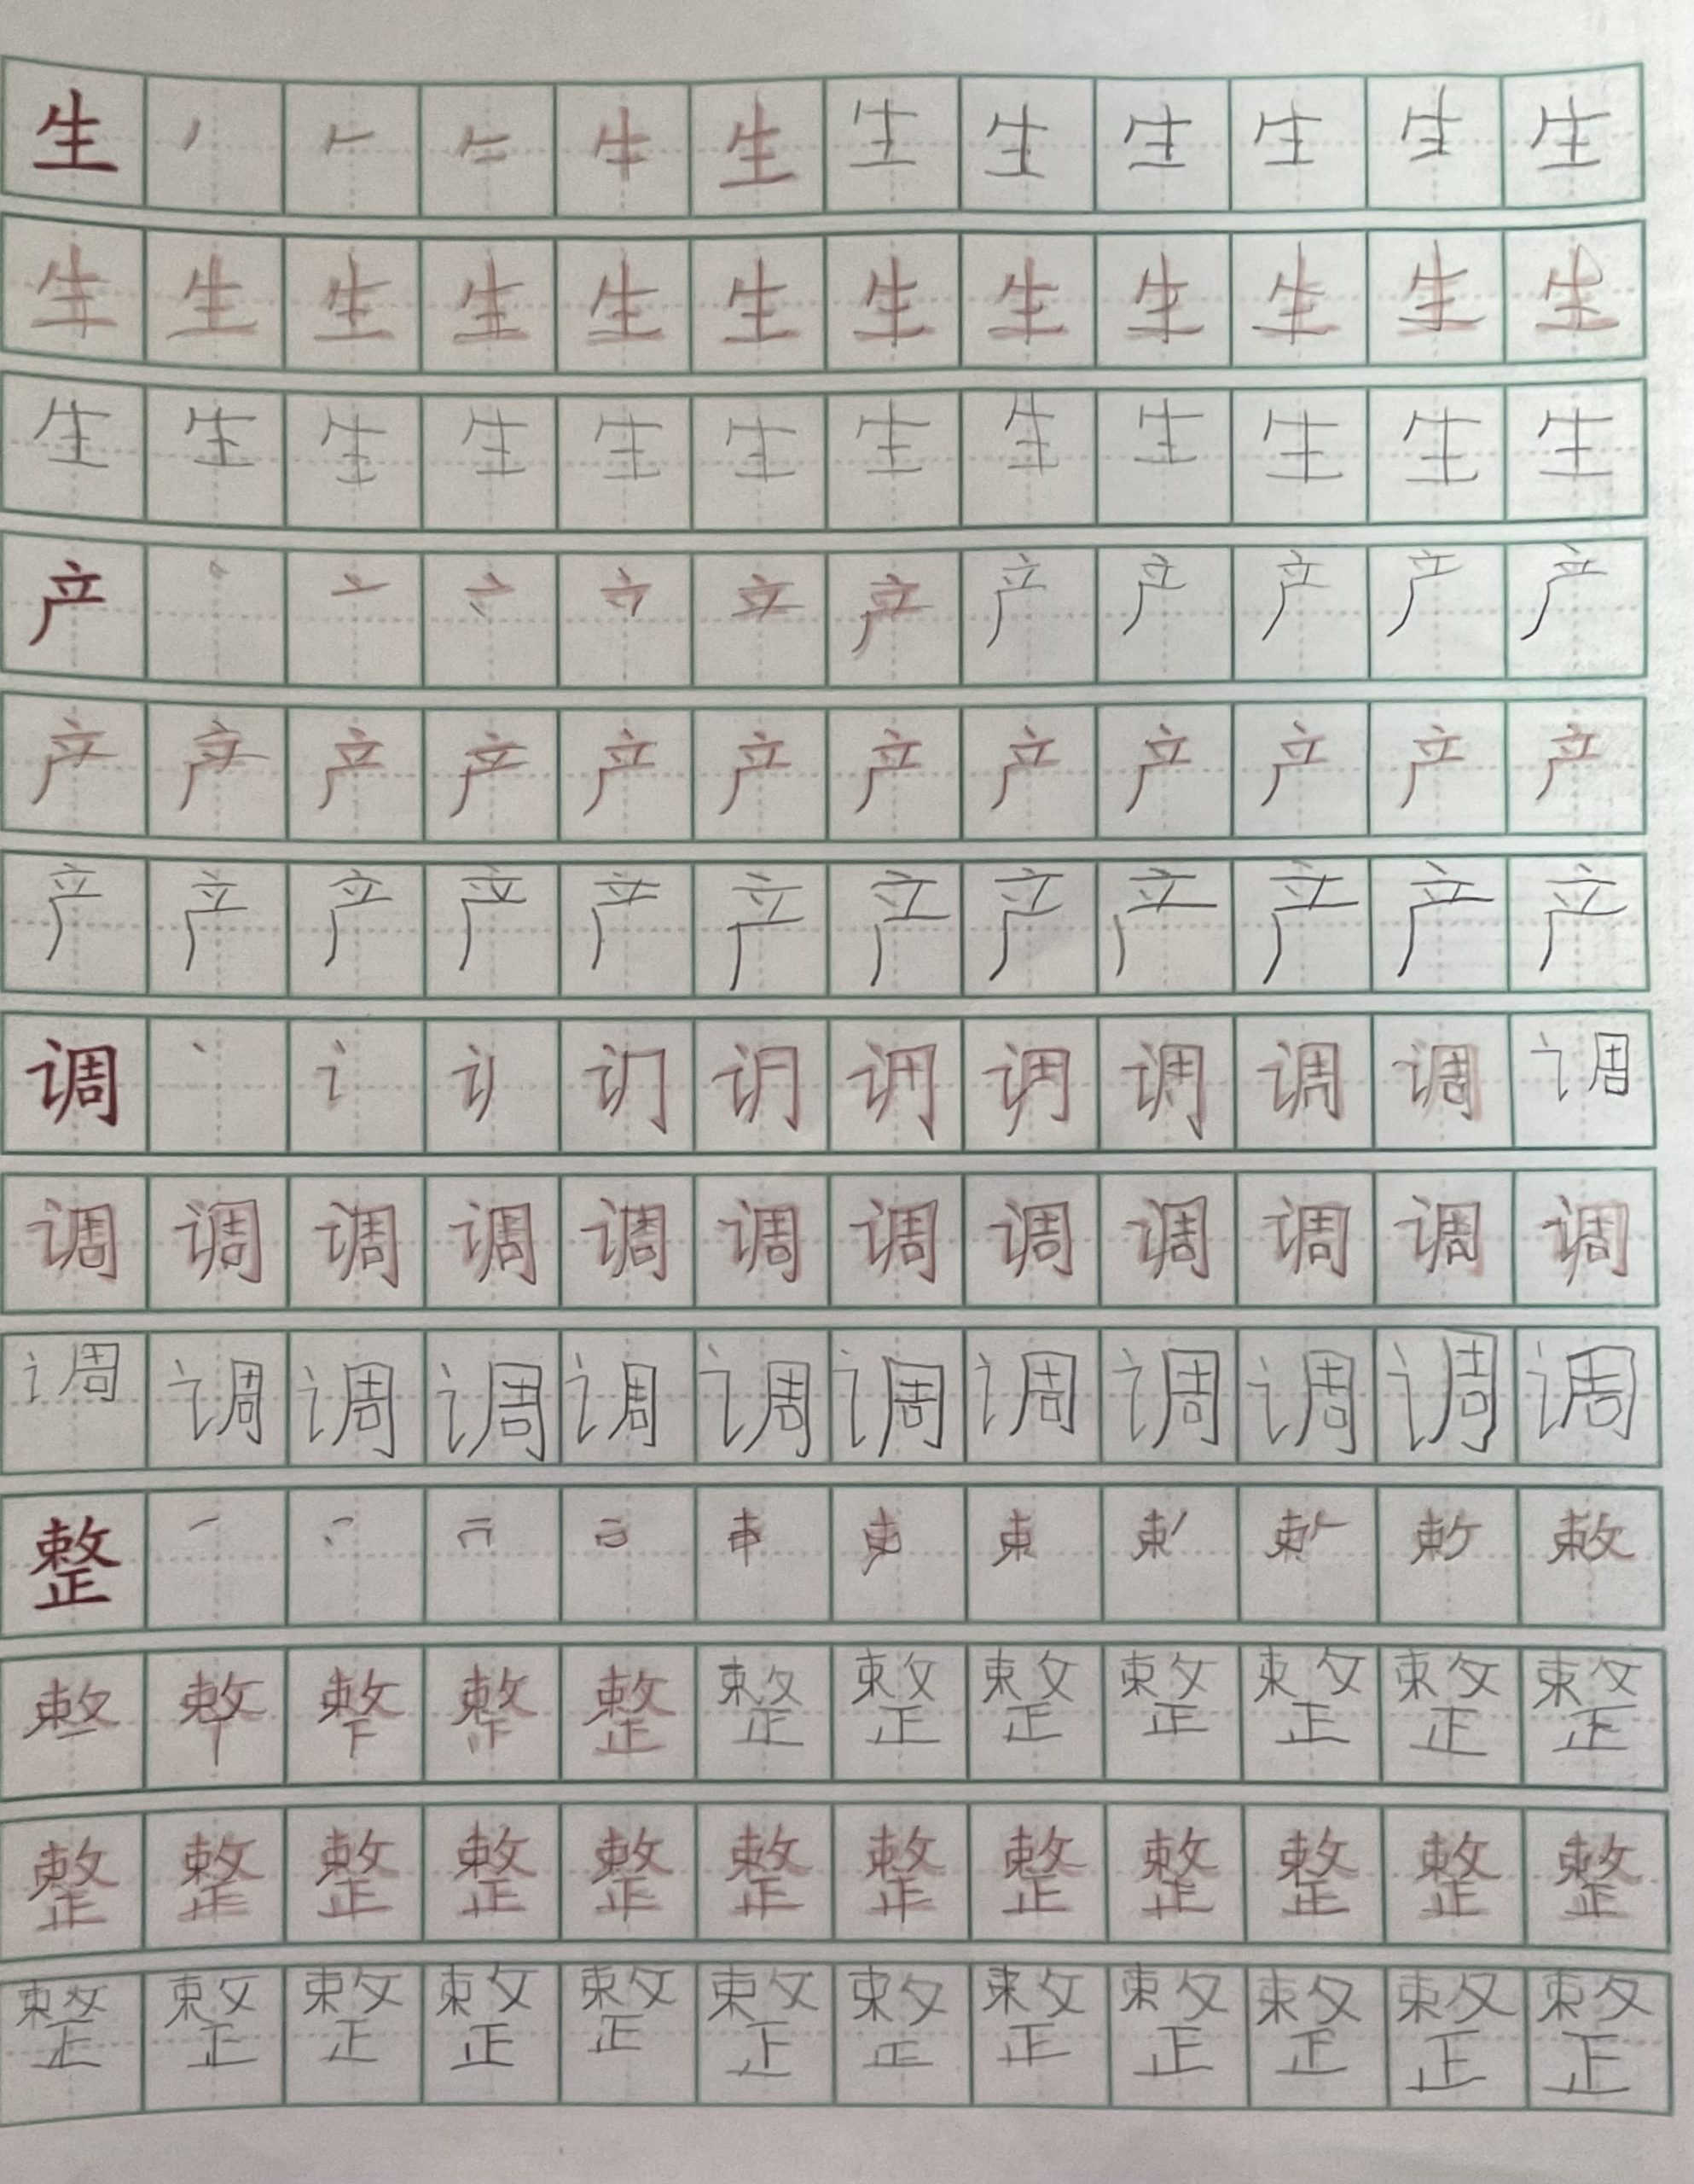 生生生生生生生生
生生生生生生生生生生生生
生生生生生生生生生生生生
产产产产产产产
产产产产产产产产产产产产
产产产产产产产产产产产产
调调调
调调调调调调调调调调调调
调调调调调调调调调调调调
整束敕
整整整整整整整整
整整整整整整整整整整整整
整整整整整整整整整整整整